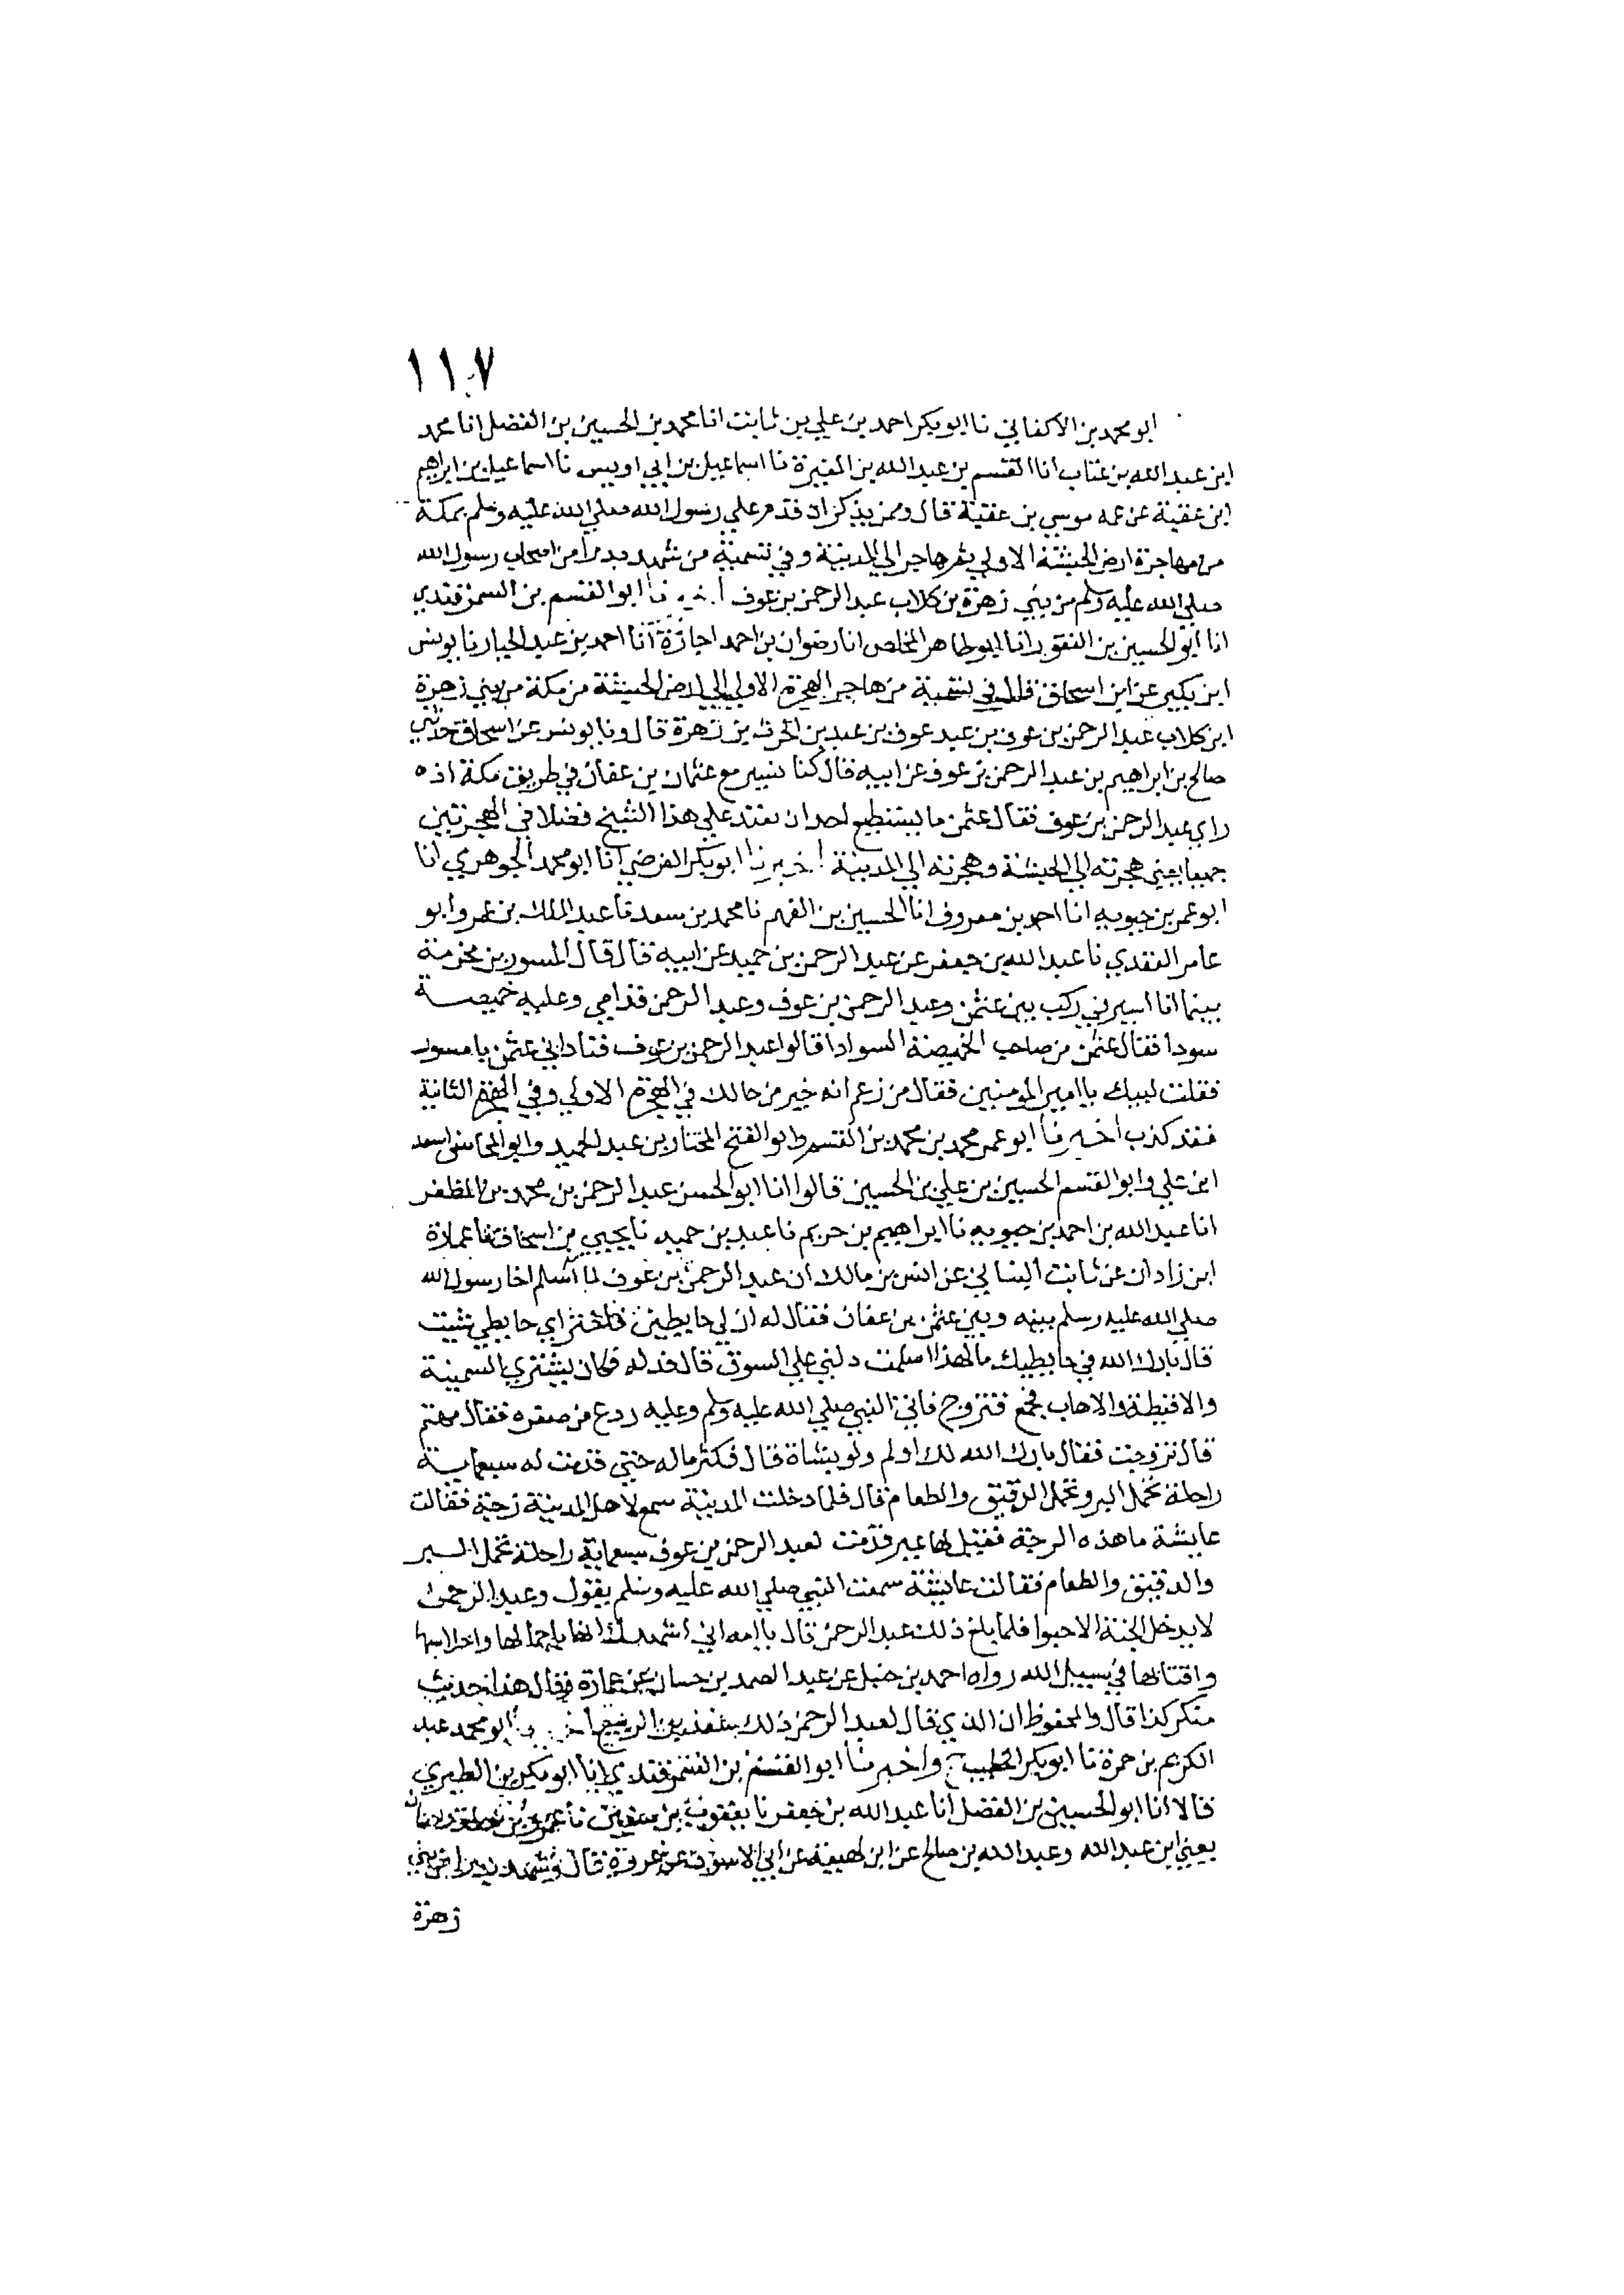 ١١٧
ابو محمد بن الاكفاني نا ابو بكر احمد بن علي بن ثابت انا محمد بن الحسين بن الفضل انا محمد
ابن عبد الله بن عتاب انا القسم بن عبد الله بن المغيرة نا اسماعيل بن ابي اويس نا اسماعيل بن ابراهيم
ابن عقبة عن عمه موسي بن عقبة قال وممن يذكر انه قدم علي رسول الله صلي الله عليه وسلم بمكة
من مهاجرة ارض الحبشة الاولي ثم هاجر الي المدينة وفي تسمية من شهد بدرا من اصحاب رسول الله
صلي الله عليه وسلم من بني زهرة بن كلاب عبد الرحمن بن عوف اخبرنا ابو القسم بن السمرقندي
انا ابو الحسين بن النقور انا ابو طاهر المخلص انا رضوان بن احمد اجازة انا احمد بن عبد الجبار نا يونس
ابن بكير عن ابن اسحاق قال في تسمية من هاجر الهجرة الاولي الي ارض الحبشة من مكة من بني زهرة
ابن كلاب عبد الرحمن بن عوف بن عبد عوف بن عبد بن الحرث بن زهرة قال ونا يونس عن اسحاق حدثني
صالح بن ابراهيم بن عبد الرحمن بن عوف عن ابيه قال كنا نسير مع عثمان بن عفان في طريق مكة اذ
راي عبد الرحمن بن عوف فقال عثمن ما يستطيع احد ان يعتد علي هذا الشيخ فضلا في الهجرتين
جميعا يعني هجرته الي الحبشة وهجرته الي المدينة اخبرنا ابو بكر الفرضي انا ابو محمد الجوهري انا
ابو عمر بن حيويه انا احمد بن معروف انا الحسين بن الفهم نا محمد بن سعد نا عبد الملك بن عمرو ابو
عامر العقدي نا عبد الله بن جعفر عن عبد الرحمن بن حميد عن ابيه قال قال المسور بن مخرمة
بينما انا اسير في ركب بين عثمن وعبد الرحمن بن عوف وعبد الرحمن قدامي وعليه خميصة
سودا فقال عثمن من صاحب الخميصة السوادا قالوا عبد الرحمن بن عوف فناداني عثمن يا مسور
فقلت لبيك يا امير المومنين فقال من زعم انه خير من خالك في الهجرة الاولي وفي الهجرة الثانية
فقد كذب اخبرنا ابو عمر محمد بن محمد بن القسم وابو الفتح المختار بن عبد الحميد وابو المحاسن اسعد
ابن علي وابو القسم الحسين بن علي بن الحسين قالوا انا ابو الحسن عبد الرحمن بن محمد بن المظفر
انا عبد الله بن احمد بن حيويه نا ابراهيم بن خريم نا عبد بن حميد نا يحيي بن اسحاق نا عمارة
ابن زاذان عن ثابت البناني عن انس بن مالك ان عبد الرحمن بن عوف لما اسلم اخا رسول الله
صلي الله عليه وسلم بينه وبين عثمن بن عفان فقال له ان لي حايطين فاختر اي حايطي شيت
قال بارك الله في حايطيك ما لهذا اسلمت دلني علي السوق قال فدله فكان يشتري السمينة
والاقيطة والاهاب فجمع فتزوج فاتي النبي صلي الله عليه وسلم وعليه ردع من صفره فقال مهيم
قال تزوجت فقال بارك الله لك اولم ولو بشاة قال فكثر ماله حتي قدمت له سبعماية
راحلة تحمل البر وتحمل الدقيق والطعام قال فلما دخلت المدينة سمع لاهل المدينة رجة فقالت
عايشة ما هذه الرجة فقيل لها عير قدمت لعبد الرحمن بن عوف سبعماية راحلة تحمل البر
والدقيق والطعام فقالت عايشة سمعت النبي صلي الله عليه وسلم يقول وعبد الرحمن
لا يدخل الجنة الا حبوا فلما بلغ ذلك عبد الرحمن قال يا امه اني اشهدك انها باحمالها واحلاسها
واقتابها في سبيل الله رواه احمد بن حنبل عن عبد الصمد بن حسان عن عمارة وقال هذا حديث
منكر كذا قال والمحفوظ ان الذي قال لعبد الرحمن ذلك سعد بن الربيع ابو محمد عبد
الكريم بن حمزة نا ابو بكر الخطيب ح واخبرنا ابو القسم بن السمرقندي انا ابو بكر بن الطبري
قالا انا ابو الحسين بن الفضل انا عبد الله بن جعفر نا يعقوب بن سفين نا
يعني ابن عبد الله وعبد الله بن صالح عن ابن لهيعة عن ابي الاسود عن عروة قال وشهد بدرا من بني
زهرة